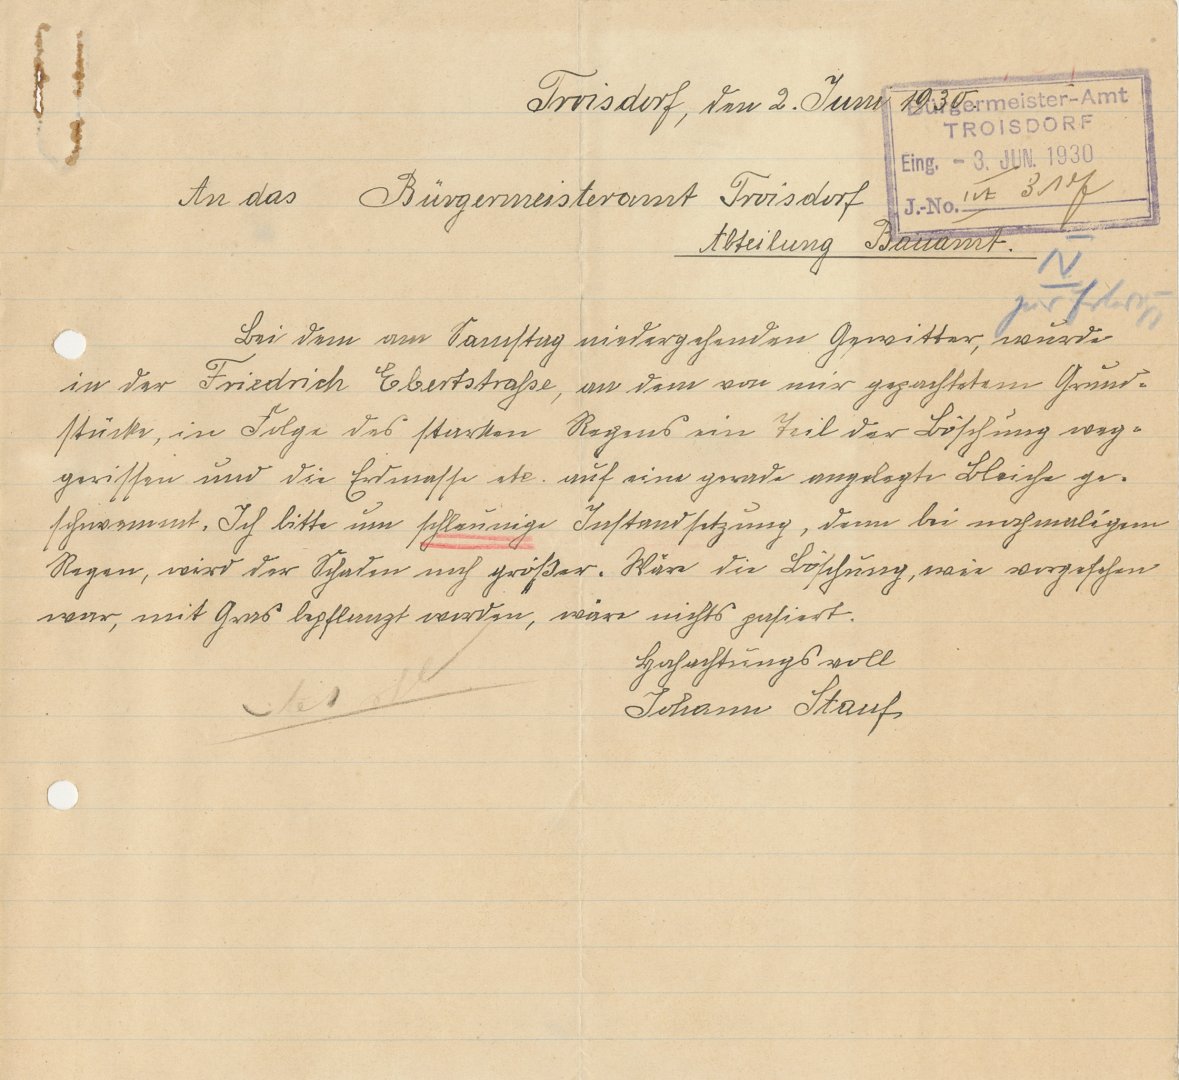 Troisdorf, den 2. Juni 1930
Bürgermeister-Amt
TROISDORF
Eing. - 3. JUN. 1930
J.-No.
An das Bürgermeisteramt Troisdorf
Abteilung Bauamt.
Bei dem am Samstag niedergehenden Gewitter, wurde
in der Friedrich Ebertstraße, an dem von mir gepachtetem Grund-
stücke, in Folge des starken Regens ein Teil der Böschung weg-
gerissen und die Erdmasse etc. auf eine gerade angelegte Bleiche ge-
schwemmt. Ich bitte um schleunige Instandsetzung, denn bei nochmaligem
Regen, wird der Schaden noch größer. Wäre die Böschung, wie vorgesehen
war, mit Gras bepflanzt worden, wäre nichts pasiert.
Hochachtungsvoll
Johann Stauf